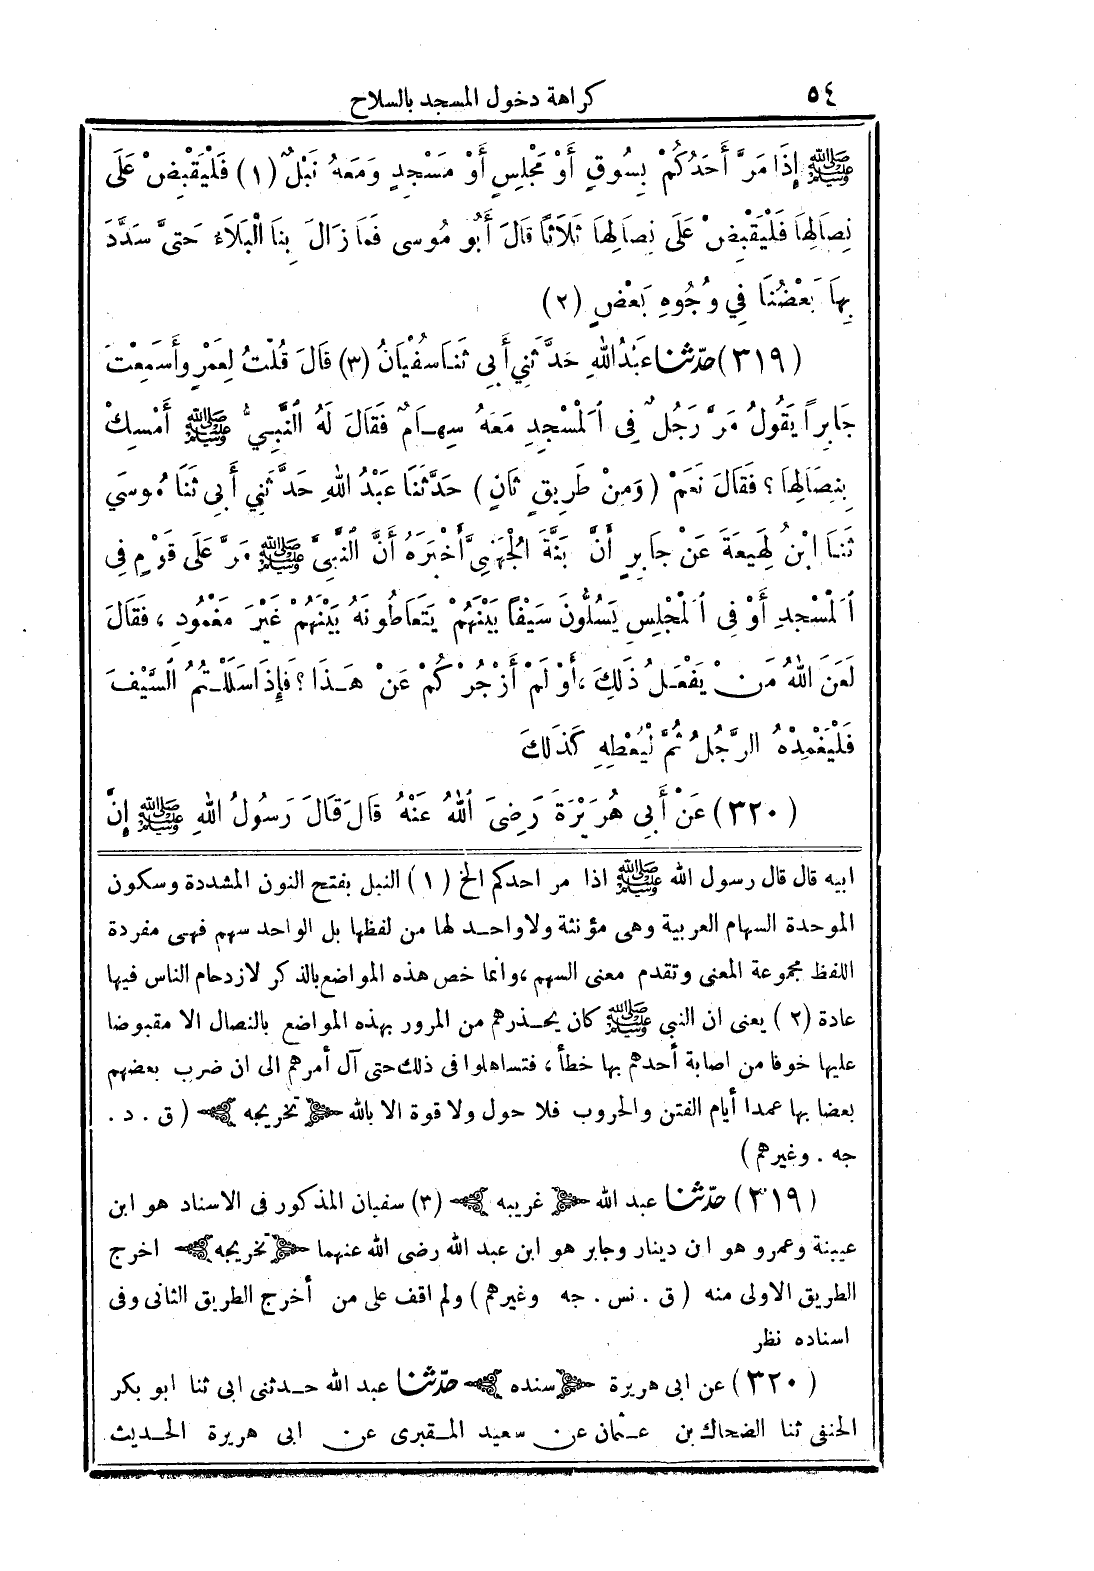 ٥٤ كراهة دخول المسجد بالسلاح
ﷺ إِذَا مَرَّ أَحَدُكُمْ بِسُوقٍ أَوْ مَجْلِسٍ أَوْ مَسْجِدٍ وَمَعَهُ نَبْلٌ (١) فَلْيَقْبِضْ عَلَى
نِصَالِهَا فَلْيَقْبِضْ عَلَى نِصَالِهَا ثَلَاثًا قَالَ أَبُو مُوسَى فَمَا زَالَ بِنَا الْبَلَاءُ حَتَّى سَدَّدَ
بِهَا بَعْضُنَا فِي وُجُوهِ بَعْضٍ (٢)
(٣١٩) حدّثنا عَبْدُ اللهِ حَدَّثَنِي أَبِي ثَنَا سُفْيَانُ (٣) قَالَ قُلْتُ لِعَمْرٍو أَسَمِعْتَ
جَابِراً يَقُولُ مَرَّ رَجُلٌ فِي الْمَسْجِدِ مَعَهُ سِهَامٌ فَقَالَ لَهُ النَّبِيُّ ﷺ أَمْسِكْ
بِنِصَالِهَا ؟ فَقَالَ نَعَمْ (وَمِنْ طَرِيقٍ ثَانٍ) حَدَّثَنَا عَبْدُ اللهِ حَدَّثَنِي أَبِي ثَنَا مُوسَى
ثَنَا ابْنُ لَهِيعَةَ عَنْ جَابِرٍ أَنَّ بَنَّةَ الْجُهَنِيَّ أَخْبَرَهُ أَنَّ النَّبِيَّ ﷺ مَرَّ عَلَى قَوْمٍ فِي
الْمَسْجِدِ أَوْ فِي الْمَجْلِسِ يَسُلُّونَ سَيْفًا بَيْنَهُمْ يَتَعَاطُونَهُ بَيْنَهُمْ غَيْرَ مَغْمُودٍ ، فَقَالَ
لَعَنَ اللهُ مَنْ يَفْعَلُ ذَلِكَ ، أَوَ لَمْ أَزْجُرْكُمْ عَنْ هَذَا ؟ فَإِذَا سَلَلْتُمُ السَّيْفَ
فَلْيَغْمِدْهُ الرَّجُلُ ثُمَّ لْيُعْطِهِ كَذَلِكَ
(٣٢٠) عَنْ أَبِي هُرَيْرَةَ رَضِيَ اللهُ عَنْهُ قَالَ قَالَ رَسُولُ اللهِ ﷺ إِنَّ
ابيه قال قال رسول الله ﷺ اذا مر احدكم الخ (١) النبل بفتح النون المشددة وسكون
الموحدة السهام العربية وهى مؤنثة ولا واحد لها من لفظها بل الواحد سهم فهى مفردة
اللفظ مجموعة المعنى وتقدم معنى السهم ، وانما خص هذه المواضع بالذكر لازدحام الناس فيها
عادة (٢) يعنى ان النبي ﷺ كان يحذرهم من المرور بهذه المواضع بالنصال الا مقبوضا
عليها خوفا من اصابة أحدهم بها خطأ ، فتساهلوا فى ذلك حتى آل أمرهم الى ان ضرب بعضهم
بعضا بها عمدا أيام الفتن والحروب فلا حول ولا قوة الا بالله تخريجه (ق . د .
جه . وغيرهم)
(٣١٩) حدّثنا عبد الله غريبه (٣) سفيان المذكور فى الاسناد هو ابن
عيينة وعمرو هو ان دينار وجابر هو ابن عبد الله رضى الله عنهما تخريجه اخرج
الطريق الاولى منه (ق . نس . جه وغيرهم) ولم اقف على من أخرج الطريق الثانى وفى
اسناده نظر
(٣٢٠) عن ابى هريرة سنده حدّثنا عبد الله حدثنى ابى ثنا ابو بكر
الحنفى ثنا الضحاك بن عثمان عن سعيد المقبرى عن ابى هريرة الحديث